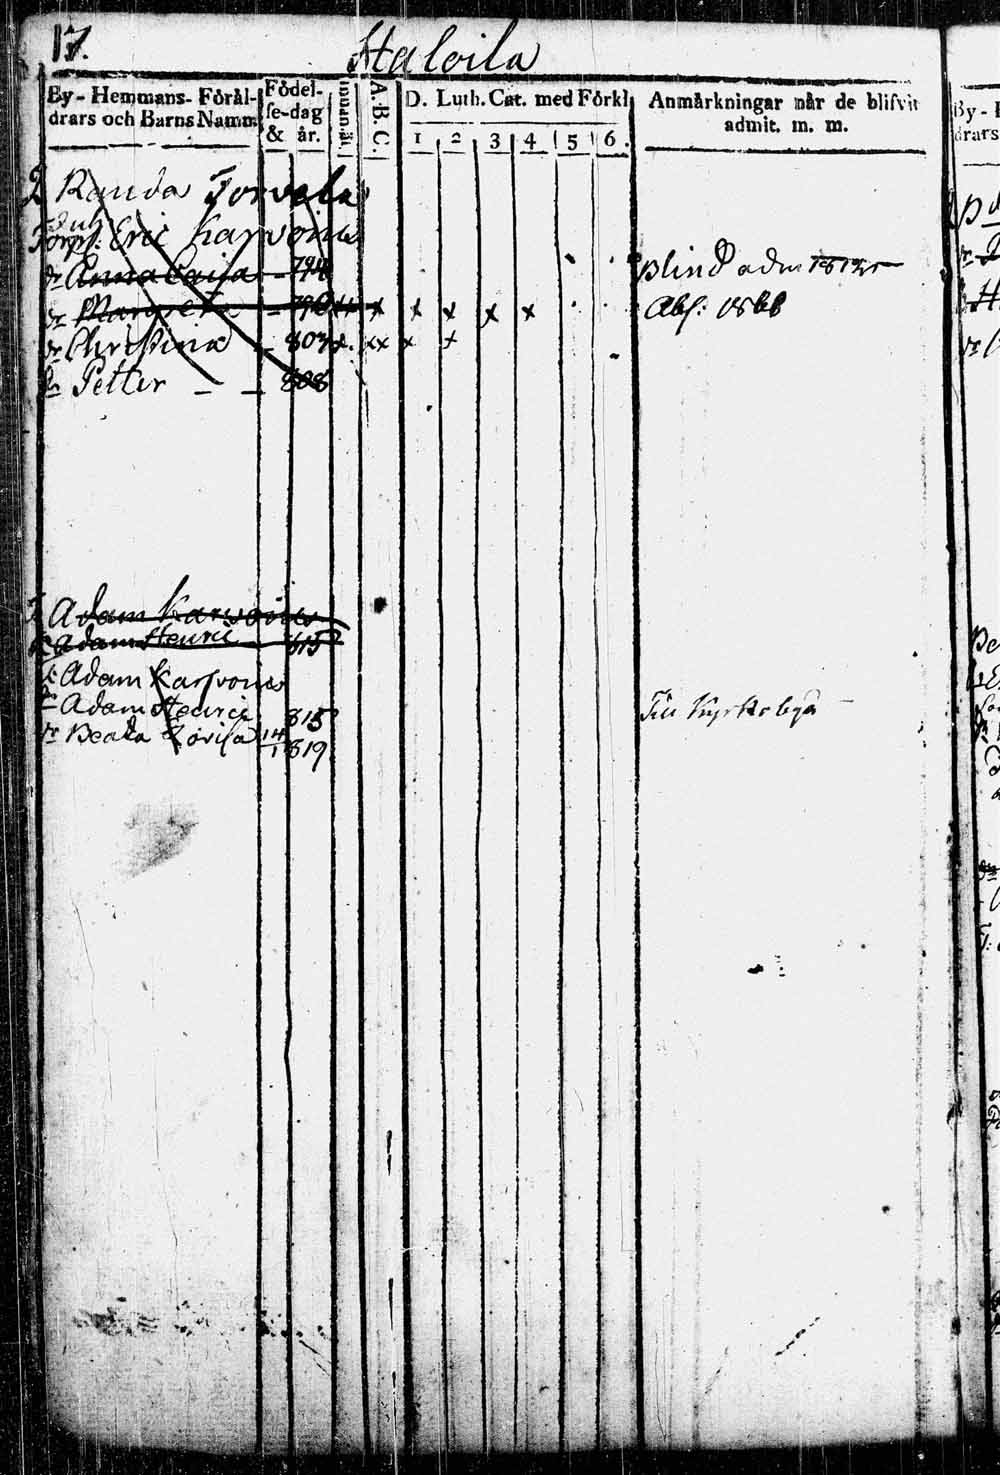 17.
Haloila
By-Hemmans-Föräl-
drars och Barns Namn.
Födel-
se-dag
& år.
Innanäl.
A. B. C.
D. Luth. Cat. med Förkl.
1 2 3 4 5 6.
Anmärkningar när de blifvit
admit. m. m.
Randa Torvela
Torp. Eric Karvonen
dr Anna Caisa - 794 Blind adm 1812
dr Margeta - 796 x x x x x x
dr Christina - 803 x. xx x x
Sn Petter - - 808
Adam Karvonen
Adam Henric 815
Adam Karvonen
Sn Adam Henric 815 Till Kyrkoby
dr Beata Lovisa 14/1 819